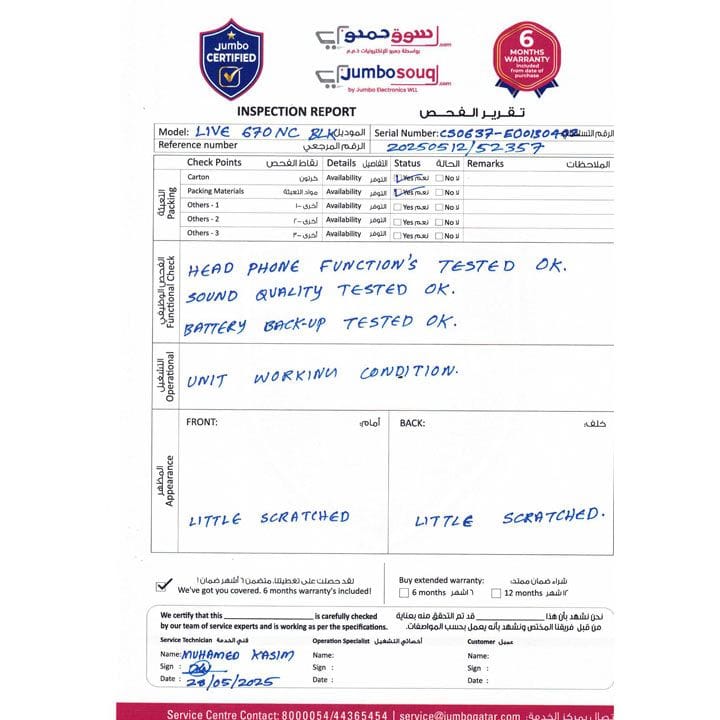 Jumbo
CERTIFIED
سوق جمبو.com
بواسطة جمبو للإلكترونيات ذ.م.م
Jumbosouq.com
by Jumbo Electronics WLL
6
MONTHS
WARRANTY
Included
from date of
purchase
INSPECTION REPORT تقرير الفحص
Model: LIVE 670NC BLK الموديل: Serial Number: CS0637-E00130402 الرقم التسلسلي
Reference number الرقم المرجعي 20250512/52357
Check Points نقاط الفحص Details التفاصيل Status الحالة Remarks الملاحظات
التعبئة Packing
Carton كرتون Availability التوفر Yes نعم No لا
Packing Materials مواد التعبئة Availability التوفر Yes نعم No لا
Others - 1 أخرى -١ Availability التوفر Yes نعم No لا
Others - 2 أخرى -٢ Availability التوفر Yes نعم No لا
Others - 3 أخرى -٣ Availability التوفر Yes نعم No لا
الفحص الوظيفي Functional Check
HEAD PHONE FUNCTION'S TESTED OK.
SOUND QUALITY TESTED OK.
BATTERY BACK-UP TESTED OK.
التشغيل Operational
UNIT WORKING CONDITION.
المظهر Appearance
FRONT: أمام: BACK: خلف:
LITTLE SCRATCHED LITTLE SCRATCHED.
لقد حصلت على تغطيتنا. متضمن ٦ أشهر ضمان! Buy extended warranty: شراء ضمان ممتد:
We've got you covered. 6 months warranty's included! 6 months ٦ اشهر 12 months ١٢ شهر
We certify that this ____________ is carefully checked نحن نشهد بأن هذا ____________ قد تم التدقق منه بعناية
by our team of service experts and is working as per the specifications. من قبل فريقنا المختص ونشهد بأنه يعمل بحسب المواصفات.
Service Technician فني الخدمة Operation Specialist أخصائي التشغيل Customer عميل
Name: MUHAMED KASIM Name: Name:
Sign : Sign : Sign :
Date : 28/05/2025 Date : Date :
Service Centre Contact: 8000054/44365454 | service@jumboqatar.com | اتصال بمركز الخدمة: